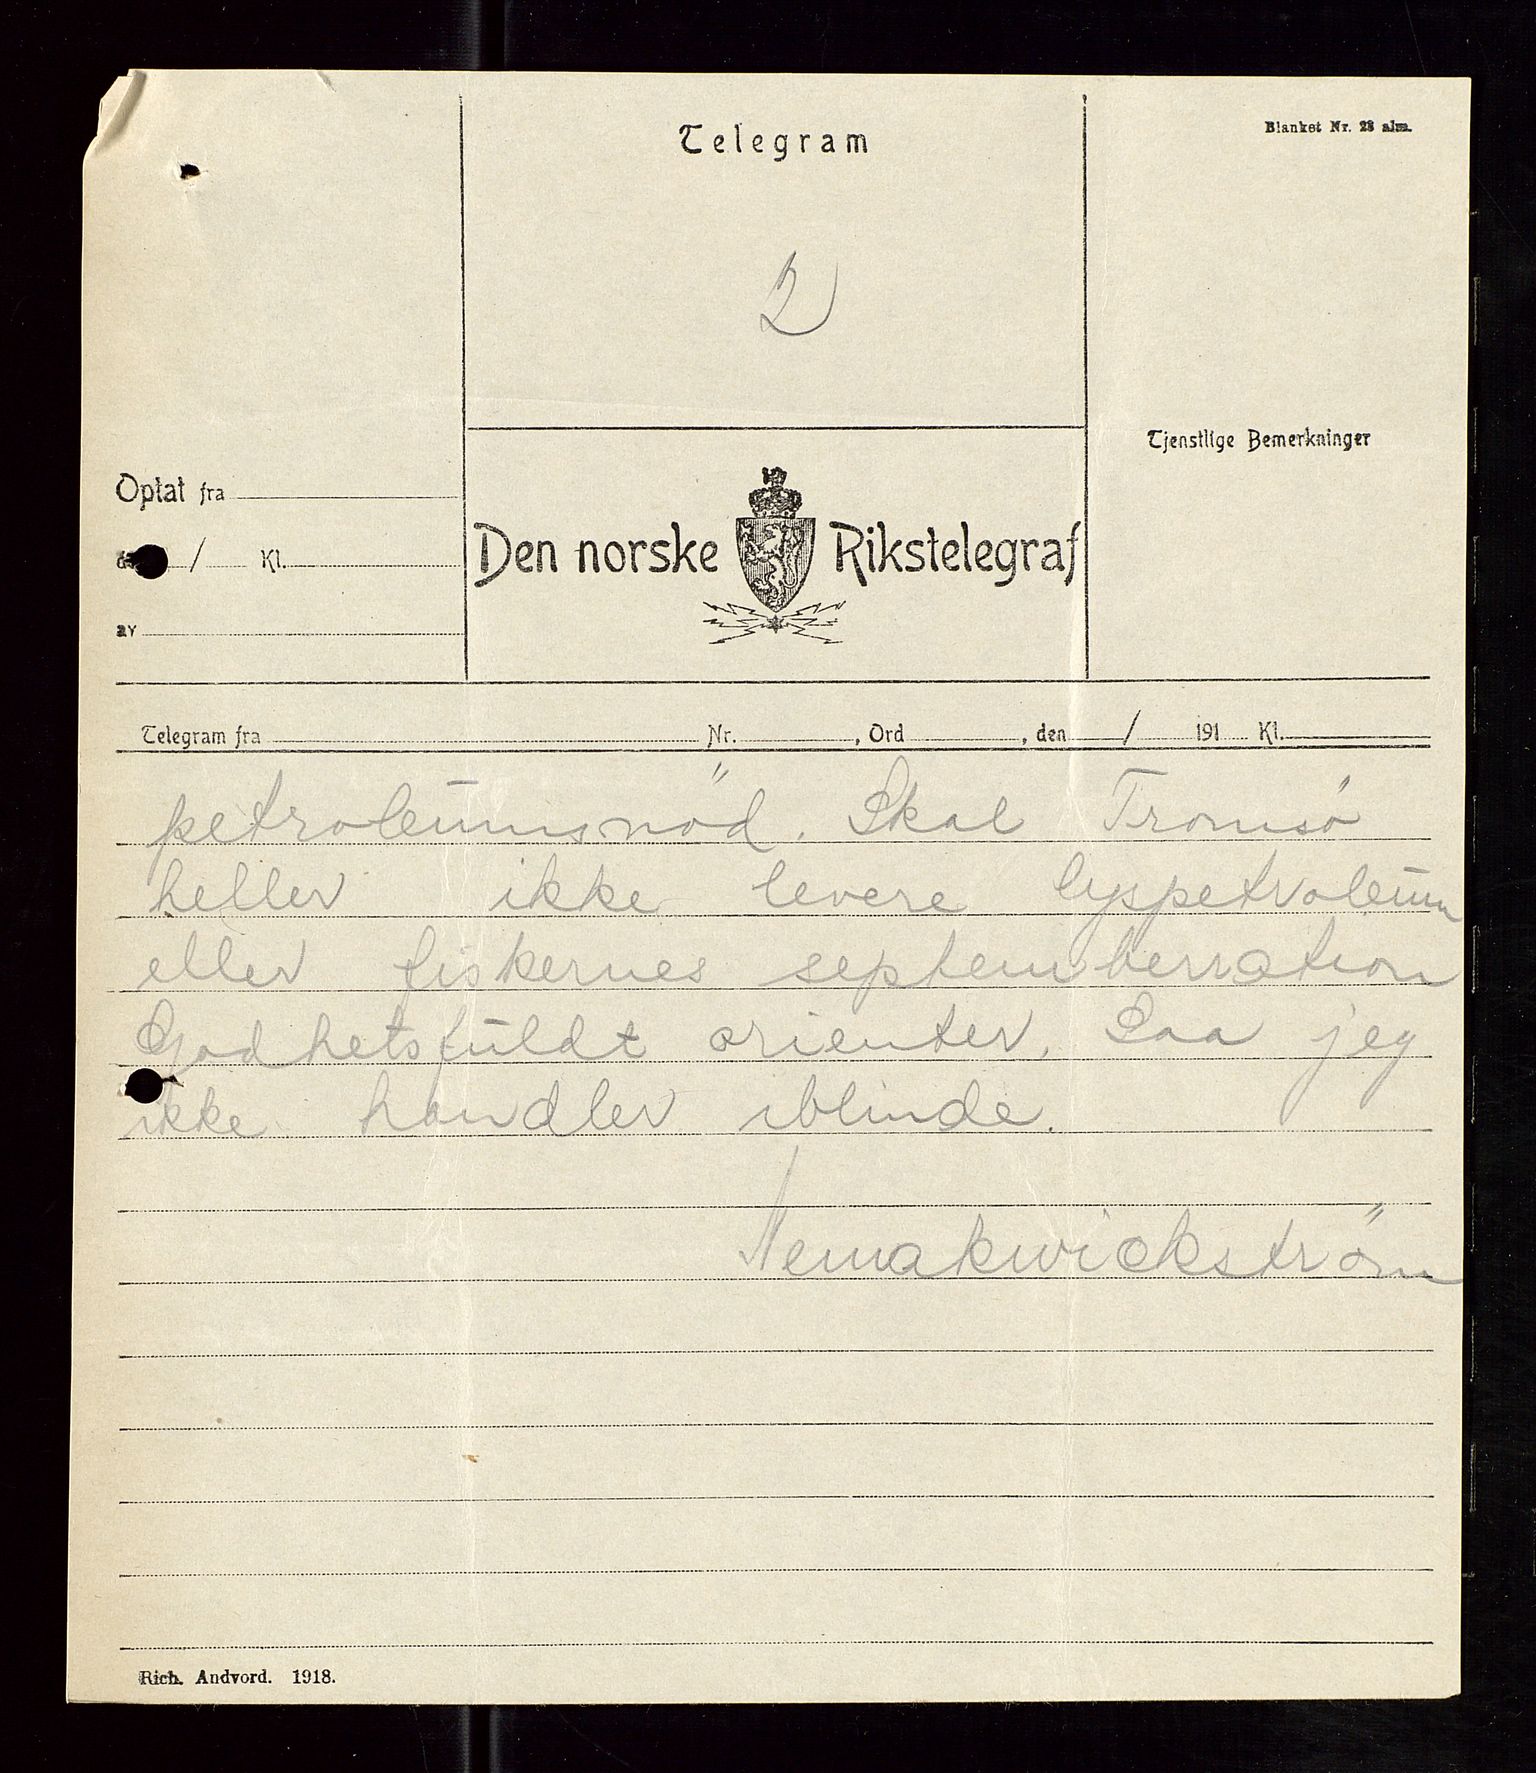 Telegram
Blanket Nr. 28 alm.
2
Tjenstlige Bemerkninger
Optat fra
/ Kl.
av
Den norske Rikstelegraf
Telegram fra Nr. , Ord , den / 191 Kl.
petroleumsnöd. Skal Tromsø
heller ikke levere lyspetroleum
eller fiskernes septemberration
Godhetsfuldt orienter. Saa jeg
ikke handler iblinde.
Nemakwickström
Rich. Andvord. 1918.